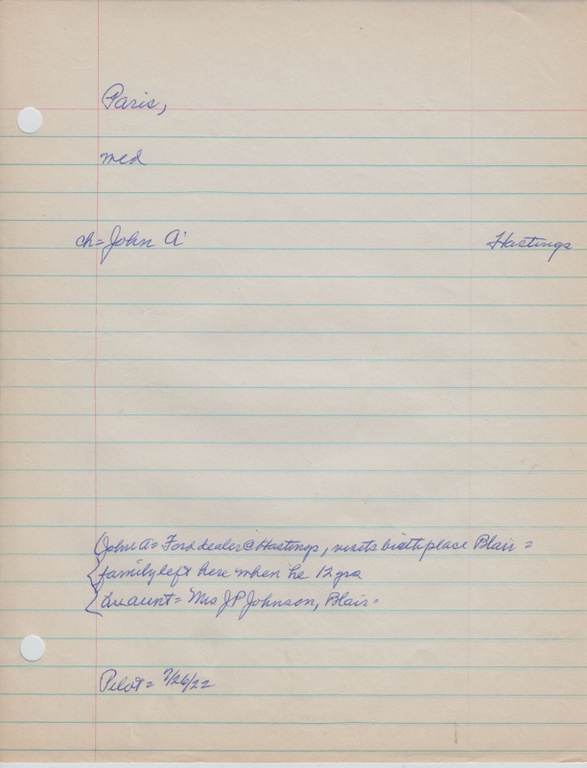 Paris,
med
ch= John A'
Hastings
John A= Ford dealer @ Hastings, visits birthplace Blair =
family left here when he 12 yrs
aunt = Mrs J P Johnson, Blair=
Pilot = 7/26/22